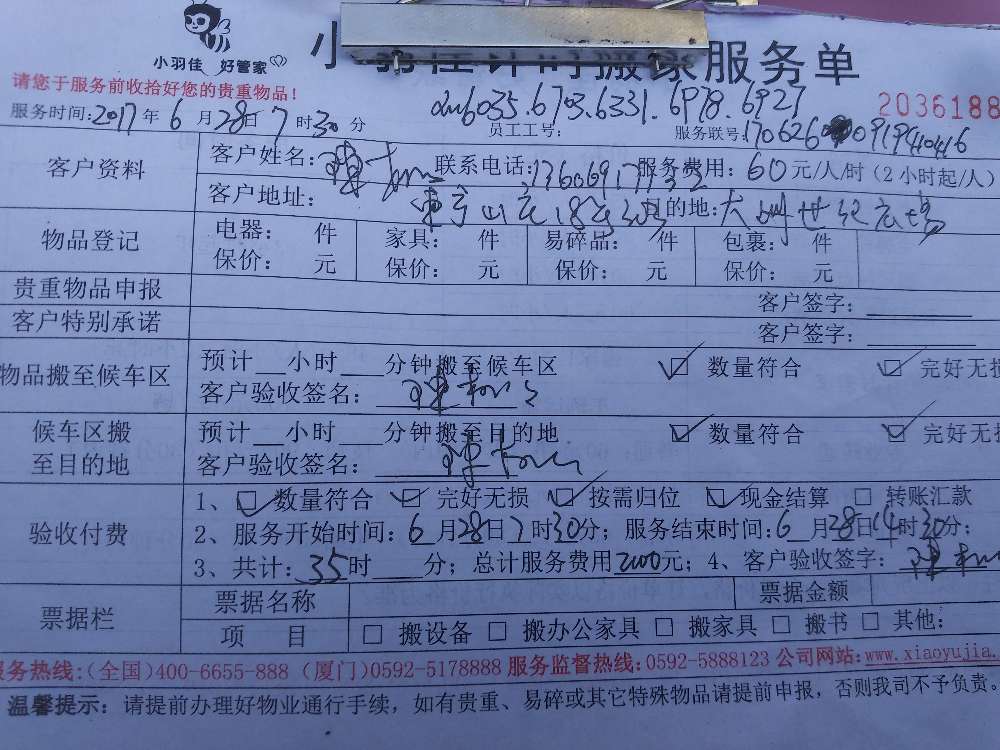 小羽佳 好管家
服务单
请您于服务前收拾好您的贵重物品！
2036188
服务时间：2017年6月28日7时30分 员工工号： 6035.6703.6331.6978.6927 服务联号：170626
客户资料 客户姓名： 联系电话： 服务费用：60元/人/时（2小时起/人）
客户地址： 目的地：
物品登记 电器： 件 家具： 件 易碎品： 件 包裹： 件
保价： 元 保价： 元 保价： 元 保价： 元
贵重物品申报 客户签字：
客户特别承诺 客户签字：
物品搬至候车区 预计__小时___分钟搬至候车区 ☑ 数量符合 ☑ 完好无损
客户验收签名：
候车区搬至目的地 预计__小时___分钟搬至目的地 ☑ 数量符合 ☑ 完好无损
客户验收签名：
验收付费 1、☑ 数量符合 ☑ 完好无损 ☑ 按需归位 ☑ 现金结算 □ 转账汇款
2、服务开始时间：6月28日7时30分；服务结束时间：6月28日14时30分；
3、共计：35时___分；总计服务费用2000元；4、客户验收签字：
票据栏 票据名称 票据金额
项 目 □ 搬设备 □ 搬办公家具 □ 搬家具 □ 搬书 □ 其他：
服务热线：（全国）400-6655-888（厦门）0592-5178888 服务监督热线：0592-5888123 公司网站：www.xiaoyujia.
温馨提示：请提前办理好物业通行手续，如有贵重、易碎或其它特殊物品请提前申报，否则我司不予负责。